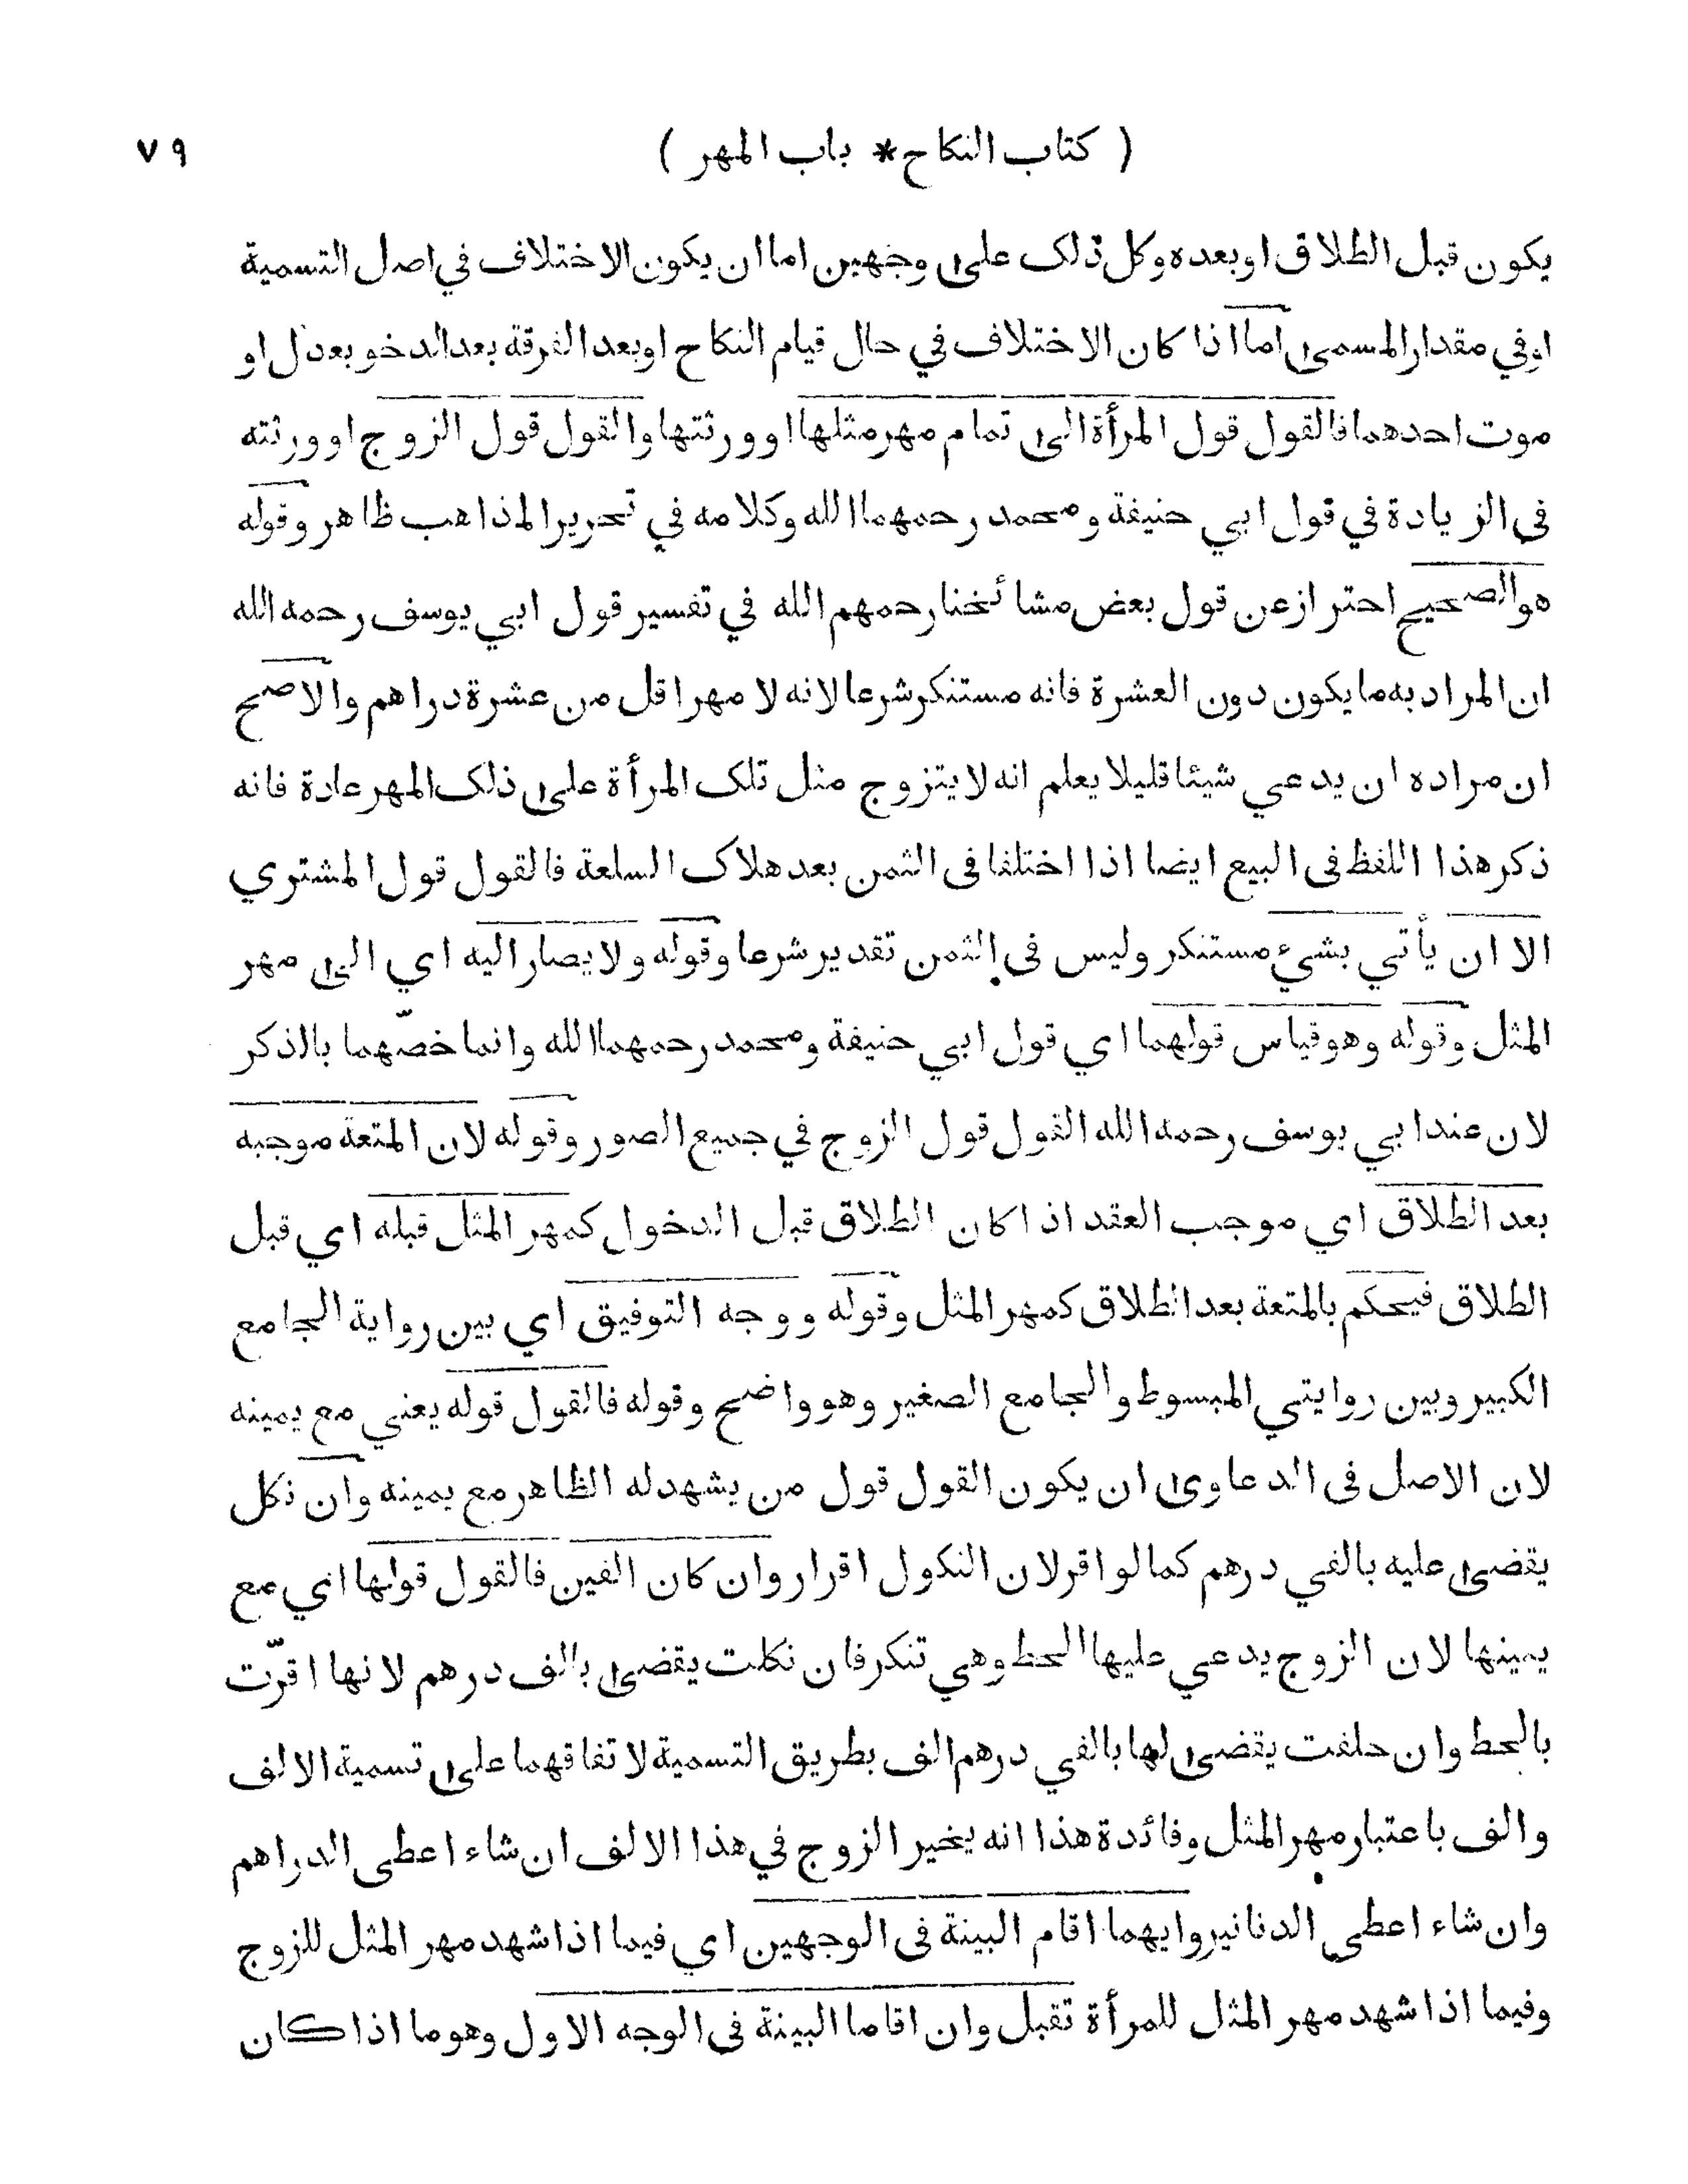 ( كتاب النكاح * باب المهر ) ٧٩
يكون قبل الطلاق او بعده وكل ذلك على وجهين اما ان يكون الاختلاف في اصل التسمية
او في مقدار المسمى اما اذا كان الاختلاف في حال قيام النكاح او بعد الفرقة بعد الدخو بعدل او
موت احدهما فالقول قول المرأة الى تمام مهر مثلها او ورثتها والقول قول الزوج او ورثته
فى الزيادة في قول ابي حنيفة ومحمد رحمهما الله وكلامه في تحرير المذاهب ظاهر وقوله
هو الصحيح احتراز عن قول بعض مشائخنا رحمهم الله في تفسير قول ابي يوسف رحمه الله
ان المراد به ما يكون دون العشرة فانه مستنكر شرعا لانه لا مهر اقل من عشرة دراهم والاصح
ان مراده ان يدعي شيئا قليلا يعلم انه لا يتزوج مثل تلك المرأة على ذلك المهر عادة فانه
ذكر هذا اللفظ فى البيع ايضا اذا اختلفا فى الثمن بعد هلاك السلعة فالقول قول المشتري
الا ان يأتي بشيء مستنكر وليس فى الثمن تقدير شرعا وقوله ولا يصار اليه اي الى مهر
المثل وقوله وهو قياس قولهما اي قول ابي حنيفة ومحمد رحمهما الله وانما خصّهما بالذكر
لان عند ابي يوسف رحمه الله القول قول الزوج في جميع الصور وقوله لان المتعة موجبه
بعد الطلاق اي موجب العقد اذا كان الطلاق قبل الدخول كمهر المثل قبله اي قبل
الطلاق فيحكم بالمتعة بعد الطلاق كمهر المثل وقوله ووجه التوفيق اي بين رواية الجامع
الكبير وبين روايتي المبسوط والجامع الصغير وهو واضح وقوله فالقول قوله يعني مع يمينه
لان الاصل فى الدعاوى ان يكون القول قول من يشهد له الظاهر مع يمينه وان نكل
يقضى عليه بالفي درهم كما لو اقر لان النكول اقرار وان كان الفين فالقول قولها اي مع
يمينها لان الزوج يدعي عليها الحط وهي تنكر فان نكلت يقضى بالف درهم لانها اقرّت
بالحط وان حلفت يقضى لها بالفي درهم الف بطريق التسمية لاتفاقهما على تسمية الالف
والف باعتبار مهر المثل وفائدة هذا انه يخير الزوج في هذا الالف ان شاء اعطى الدراهم
وان شاء اعطى الدنانير وايهما اقام البينة فى الوجهين اي فيما اذا شهد مهر المثل للزوج
وفيما اذا شهد مهر المثل للمرأة تقبل وان اقاما البينة فى الوجه الاول وهو ما اذا كان